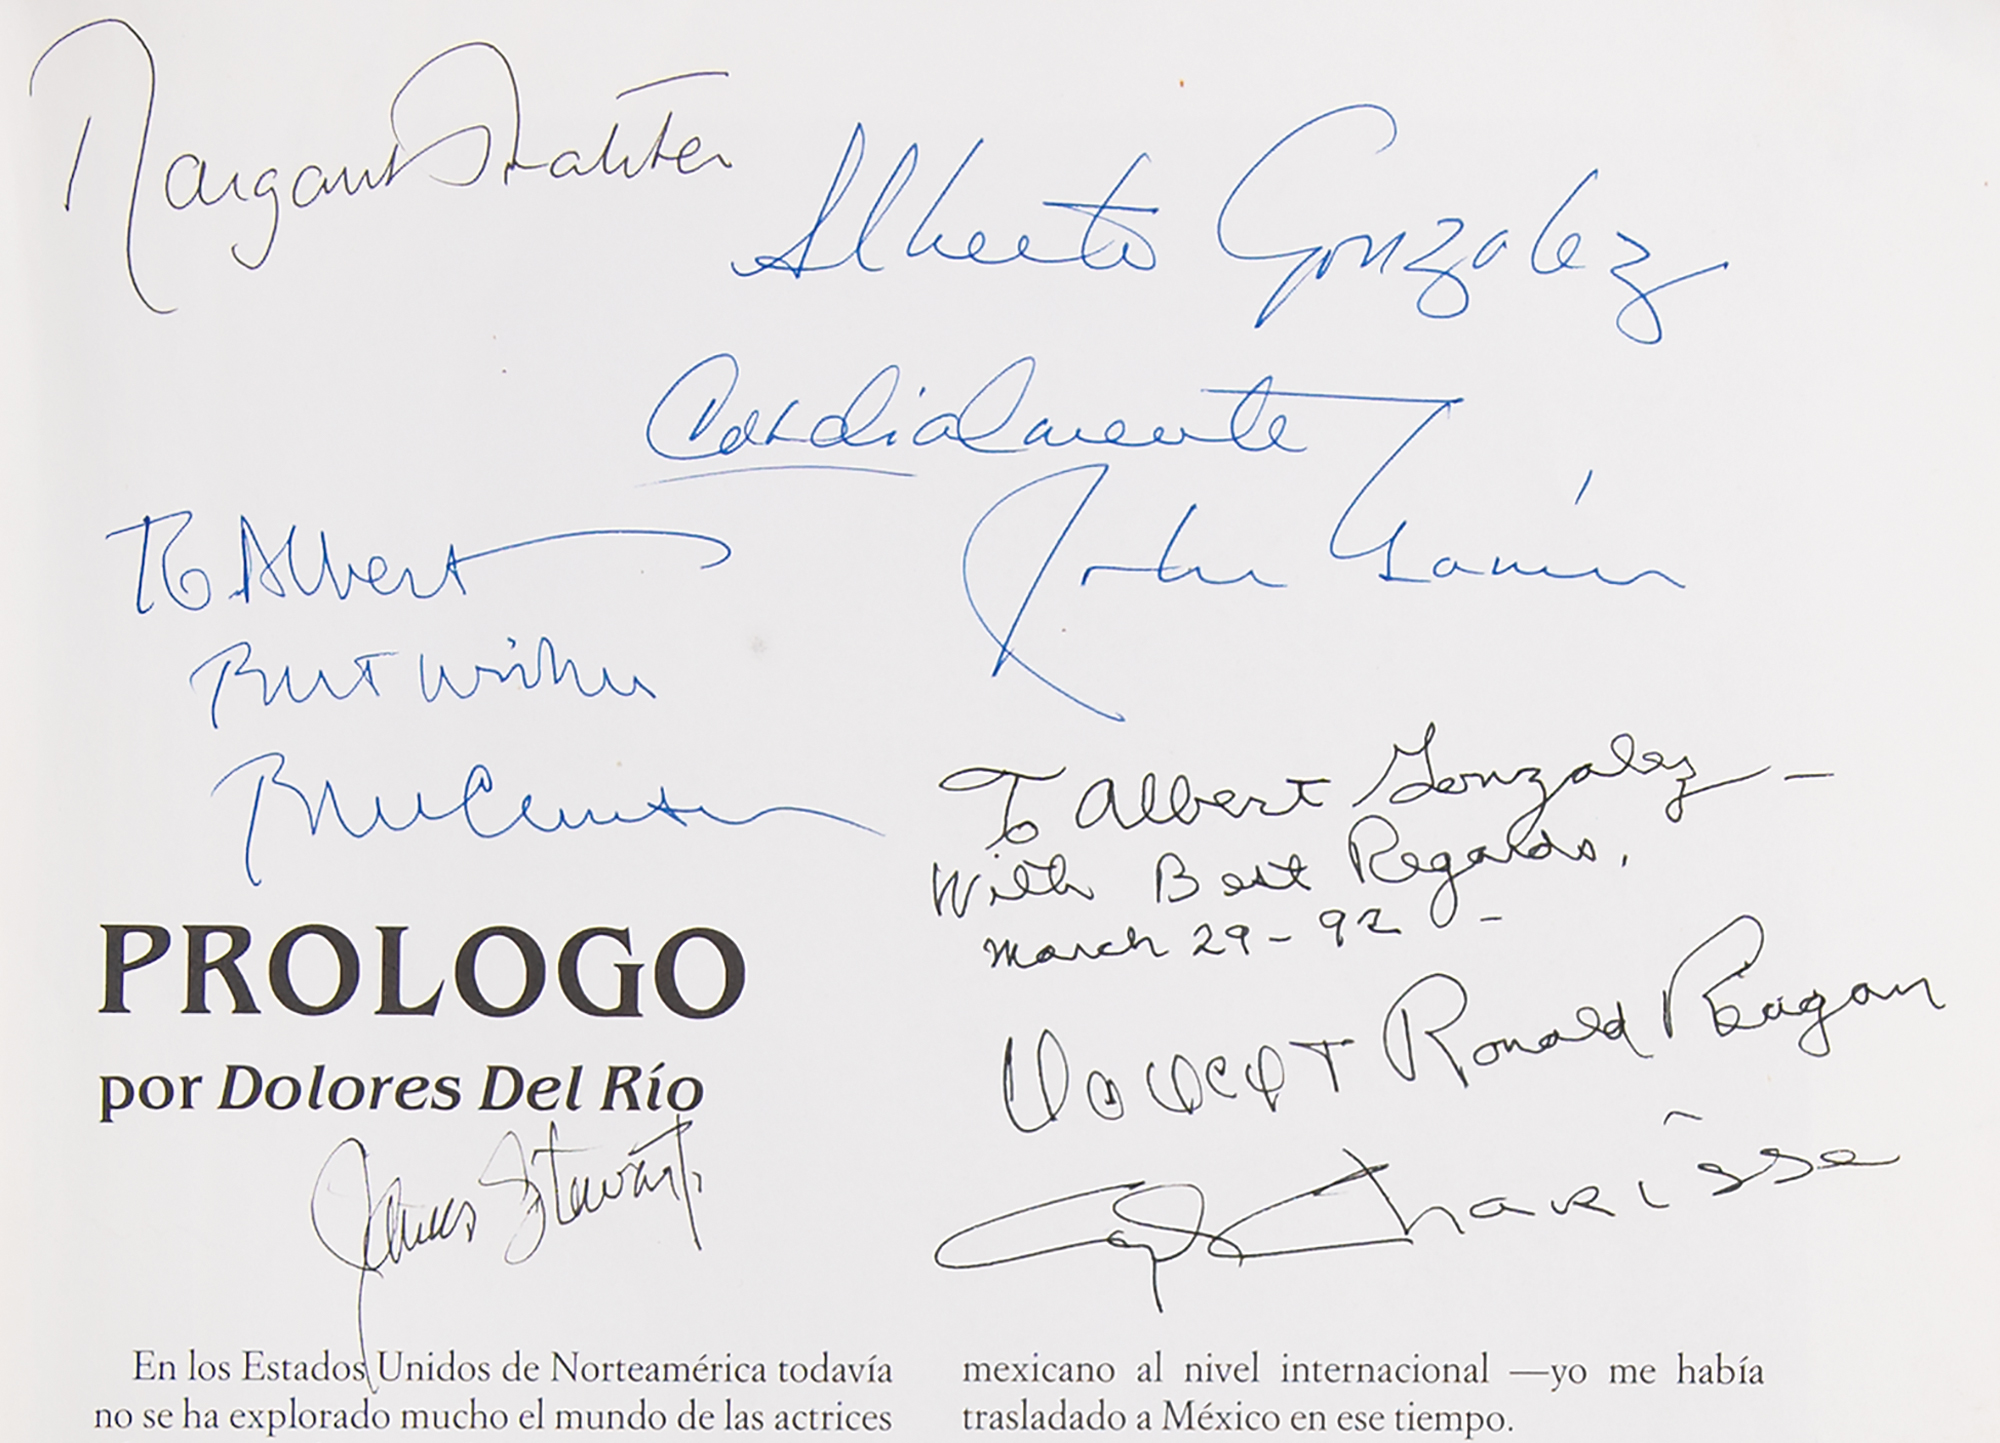 Margaret Thatcher
Alberto Gonzalez
Cordialmente
John Gavin
To Albert
Best wishes
Bill Clinton
To Albert Gonzalez –
With Best Regards.
March 29-92 –
Ronald Reagan
Cyd Charisse
PROLOGO
por Dolores Del Río
James Stewart
En los Estados Unidos de Norteamérica todavía
no se ha explorado mucho el mundo de las actrices
mexicano al nivel internacional —yo me había
trasladado a México en ese tiempo.